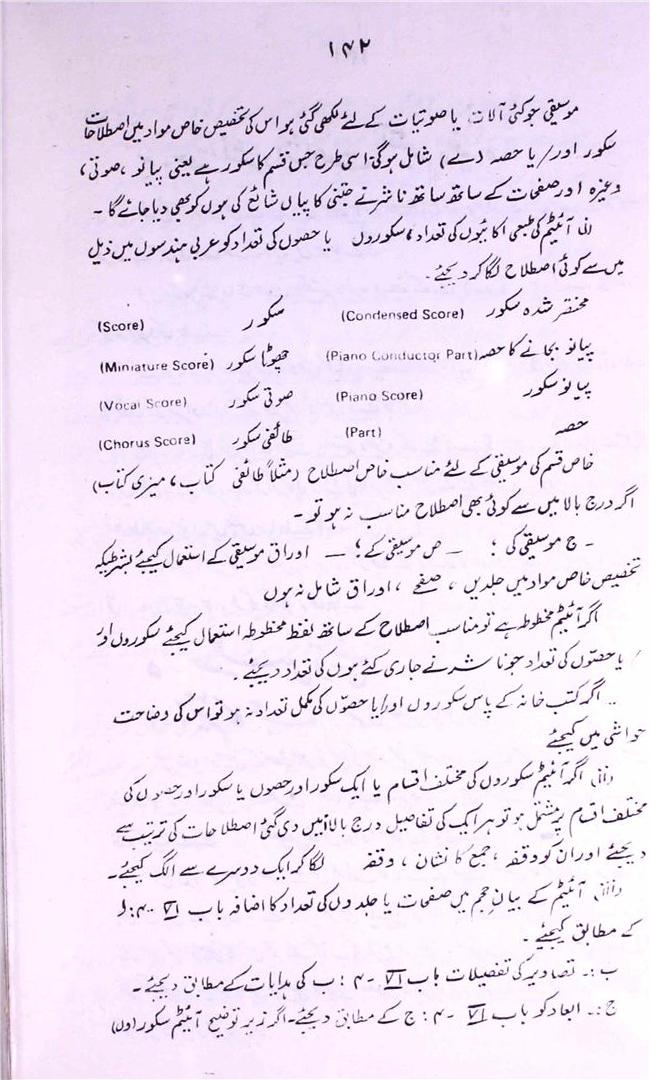 ۱۴۲
موسیقی جو کئی آلات یا صوتیات کے لئے لکھی گئی ہو اس کی تخصیص خاص مواد میں اصطلاحات
سکور اور / یا حصہ (ے) شامل ہوگی۔ اسی طرح جس قسم کا سکور ہے یعنی پیانو، صوتی،
وغیرہ اور صفحات کے ساتھ ساتھ ناشر نے جتنی کاپیاں شائع کی ہوں کو بھی دیا جائے گا ۔
(i) آئیٹم کی طبعی اکائیوں کی تعداد، سکوروں یا حصوں کی تعداد کو عربی ہندسوں میں ذیل
میں سے کوئی اصطلاح لگا کر دیجئے ۔
مختصر شدہ سکور (Condensed Score) سکور (Score)
پیانو بجانے کا حصہ (Piano Conductor Part) چھوٹا سکور (Miniature Score)
پیانو سکور (Piano Score) صوتی سکور (Vocal Score)
حصہ (Part) طائفی سکور (Chorus Score)
خاص قسم کی موسیقی کے لئے مناسب خاص اصطلاح (مثلاً طائفی کتاب، میزی کتاب)
اگر درج بالا میں سے کوئی بھی اصطلاح مناسب نہ ہو تو ۔
۔ ج موسیقی کی ؛ ــ ص موسیقی کے ؛ ــ اوراق موسیقی کے استعمال کیجئے بشرطیکہ
تخصیص خاص مواد میں جلدیں ، صفحے ، اوراق شامل نہ ہوں
اگر آئیٹم مخطوطہ ہے تو مناسب اصطلاح کے ساتھ لفظ مخطوطہ استعمال کیجئے سکوروں اور
/ یا حصّوں کی تعداد جو ناشر نے جاری کئے ہوں کی تعداد دیجئے ۔
.. اگر کتب خانہ کے پاس سکوروں اور/یا حصوّں کی مکمل تعداد نہ ہو تو اس کی وضاحت
حواشی میں کیجئے
(ii) اگر آئیٹم سکوروں کی مختلف اقسام یا ایک سکور اور حصوں یا سکور اور حصوں کی
مختلف اقسام پر مشتمل ہو تو ہر ایک کی تفاصیل درج بالا میں دی گئی اصطلاحات کی ترتیب سے
دیجئے اور ان کو وقفہ ، جمع کا نشان ، وقفہ لگا کر ایک دوسرے سے الگ کیجئے۔
(iii) آئیٹم کے بیان حجم میں صفحات یا جلدوں کی تعداد کا اضافہ باب VI ۔ ۴ : ل
کے مطابق کیجئے ۔
ب :۔ تصاویر کی تفصیلات باب VI ۔ ۴ : ب کی ہدایات کے مطابق دیجئے ۔
ج :۔ ابعاد کو باب VI ۔ ۴ : ج کے مطابق دیجئے۔ اگر زیر توضیح آئیٹم سکور (وں)